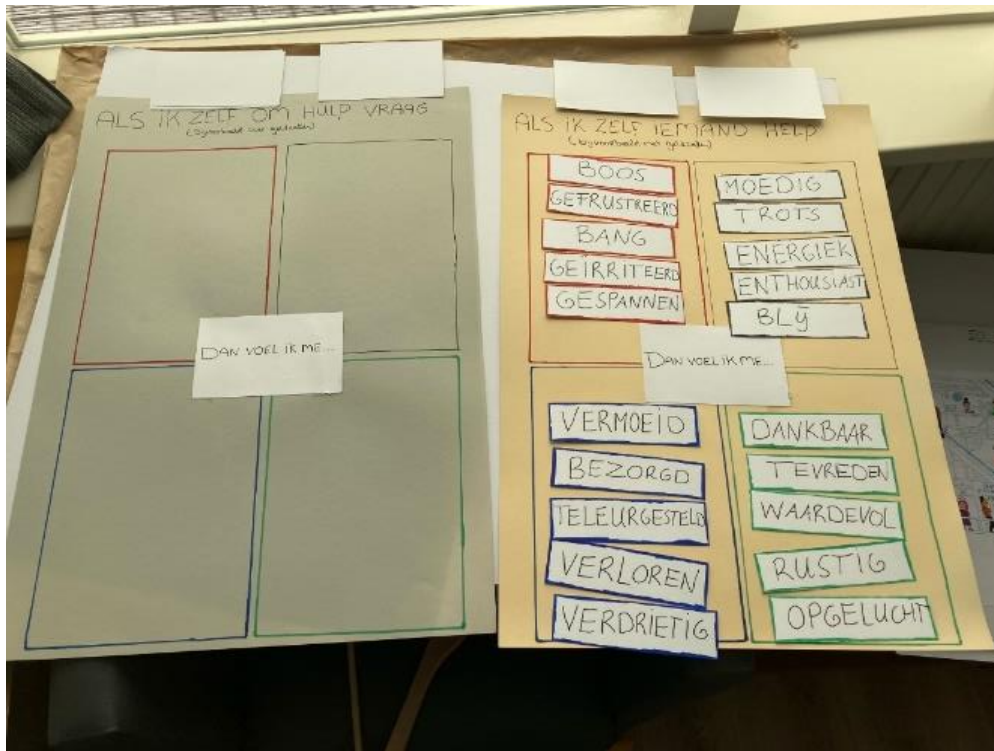 ALS IK ZELF OM HULP VRAAG...
DAN VOEL IK ME...
ALS IK ZELF IEMAND HELP
BOOS
GEFRUSTREERD
BANG
GEÏRRITEERD
GESPANNEN
MOEDIG
TROTS
ENERGIEK
ENTHOUSIAST
BLIJ
DAN VOEL IK ME...
VERMOEID
BEZORGD
TELEURGESTELD
VERLOREN
VERDRIETIG
DANKBAAR
TEVREDEN
WAARDEVOL
RUSTIG
OPGELUCHT